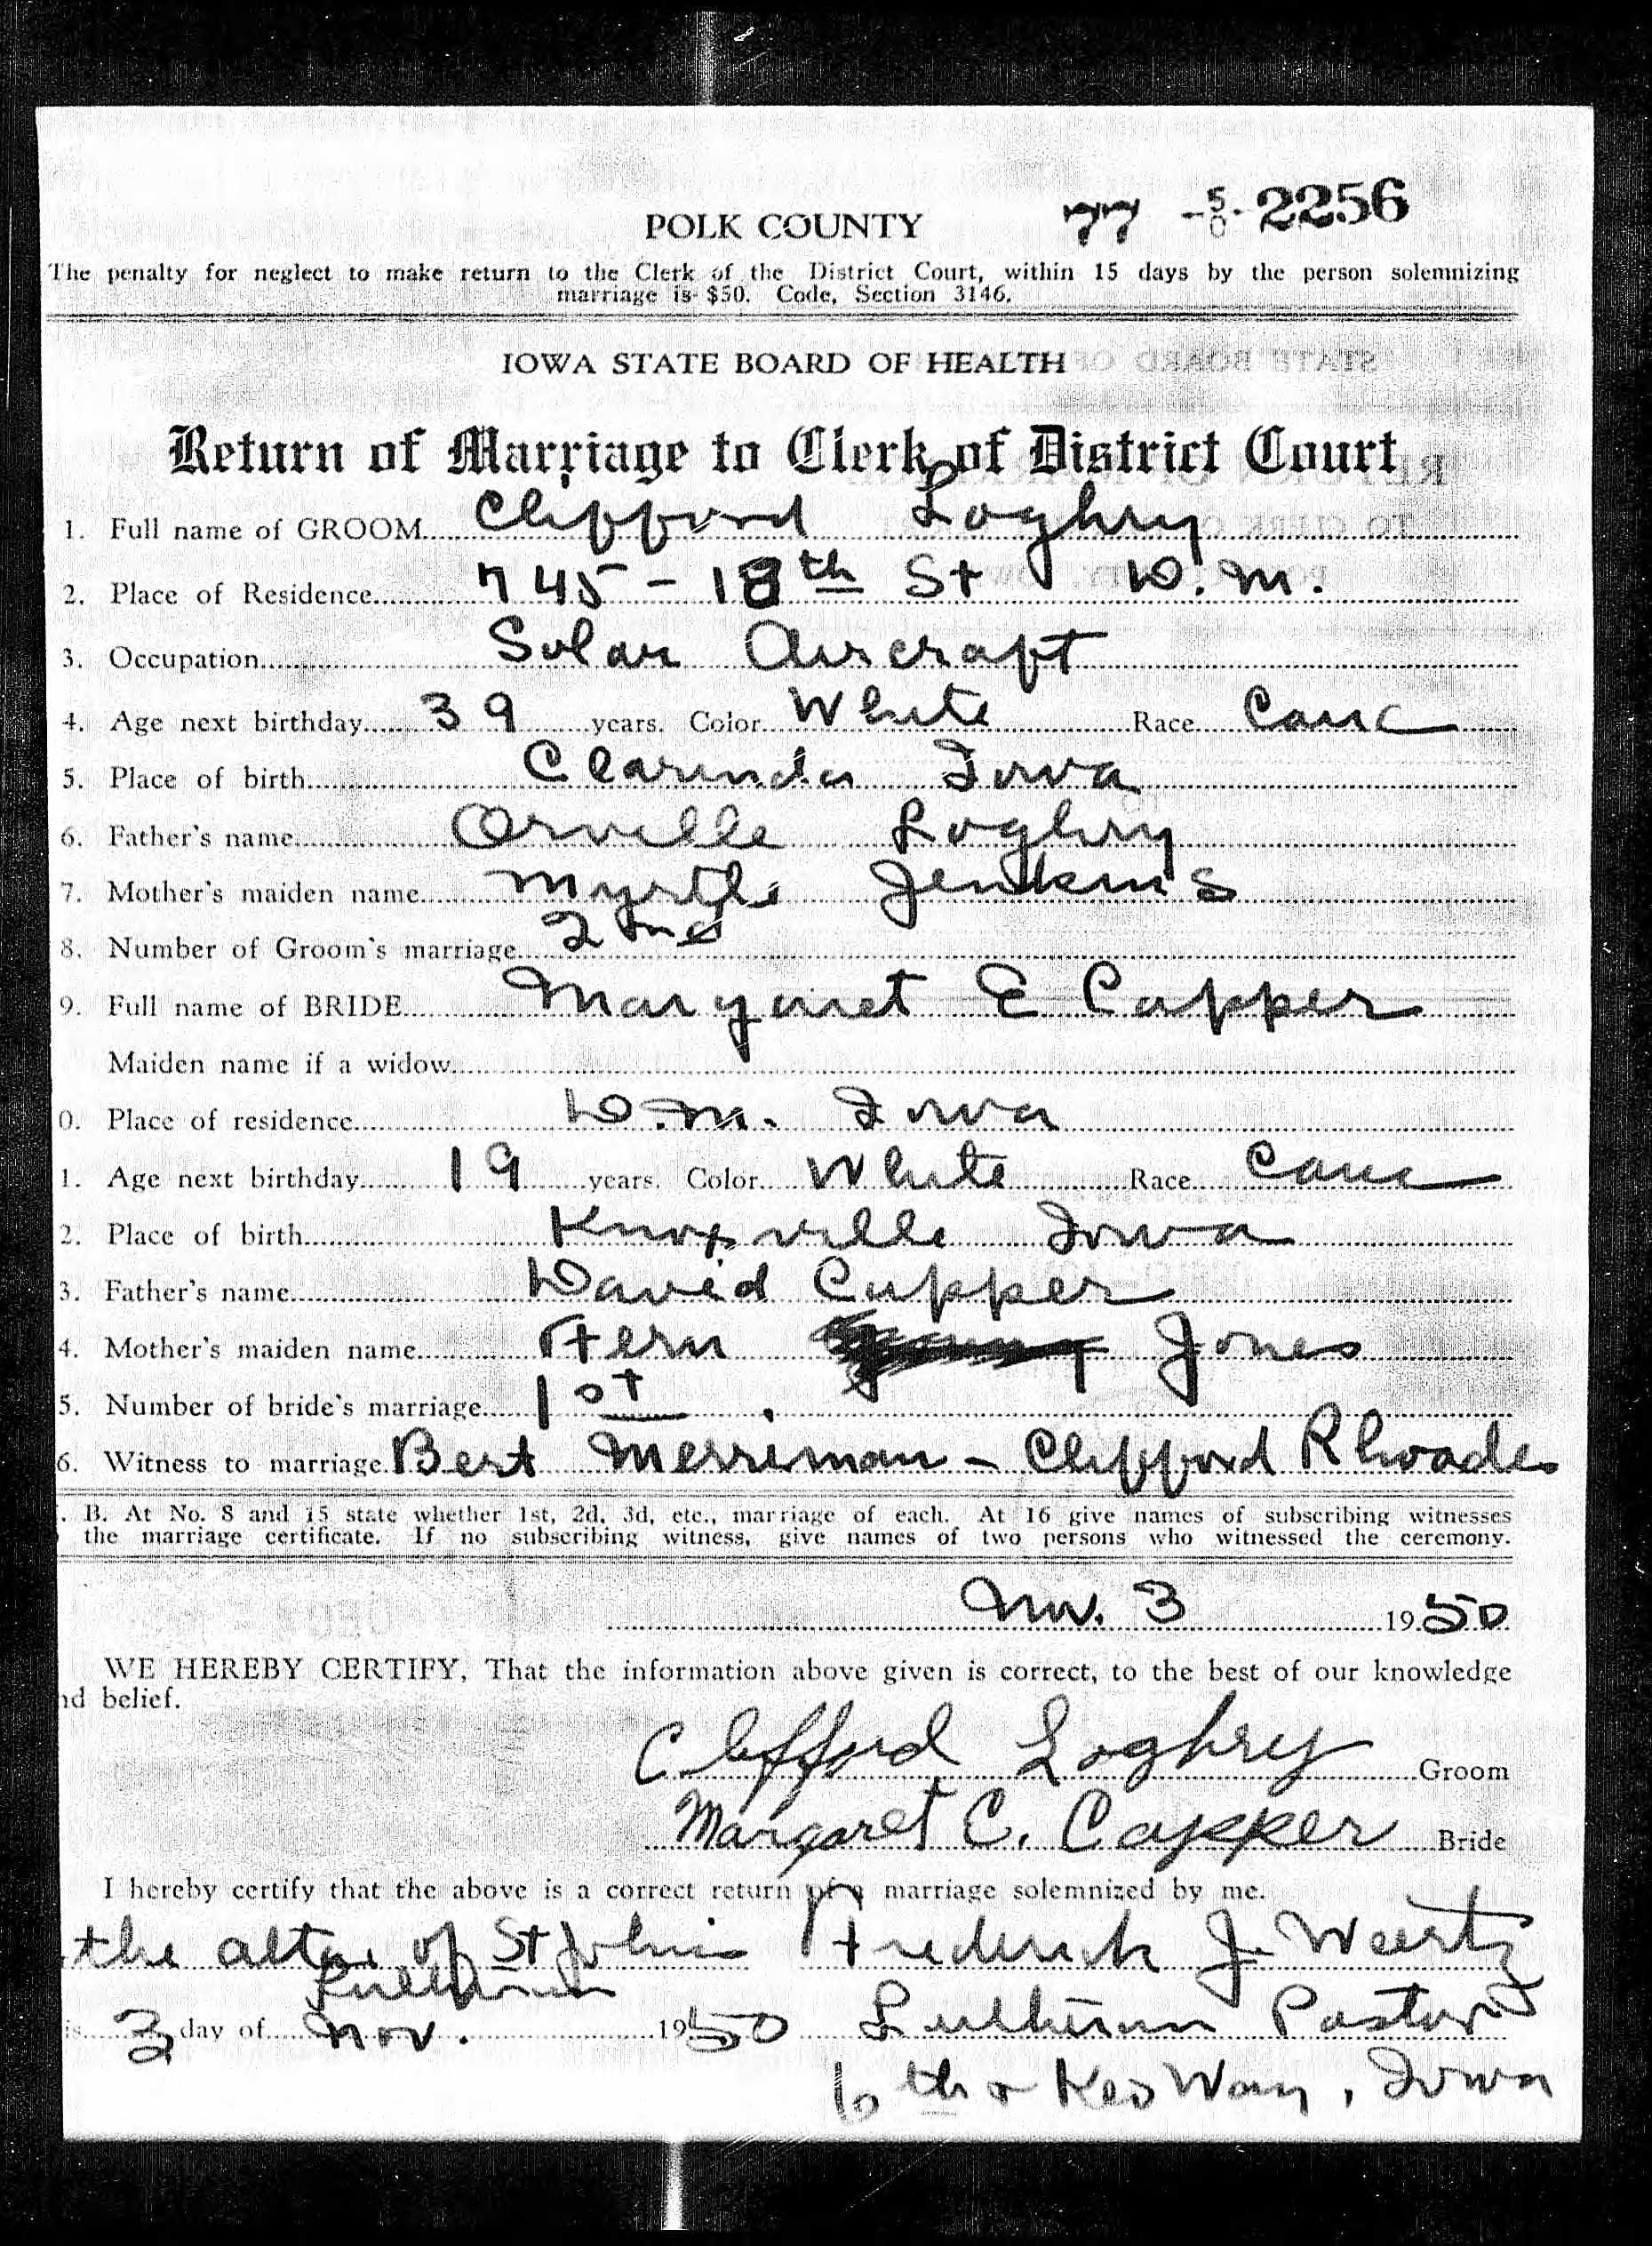 POLK COUNTY 77 -50- 2256
The penalty for neglect to make return to the Clerk of the District Court, within 15 days by the person solemnizing
marriage is $50. Code, Section 3146.
IOWA STATE BOARD OF HEALTH
Return of Marriage to Clerk of District Court
1. Full name of GROOM Clifford Loghry
2. Place of Residence 745 - 18th St D.M.
3. Occupation Solar Aircraft
4. Age next birthday 39 years. Color White Race Cauc
5. Place of birth Clarinda Iowa
6. Father's name Orville Loghry
7. Mother's maiden name Myrtle Jenkins
8. Number of Groom's marriage 2nd
9. Full name of BRIDE Margaret E Capper
Maiden name if a widow
0. Place of residence D.M. Iowa
1. Age next birthday 19 years. Color White Race Cauc
2. Place of birth Knoxville Iowa
3. Father's name David Capper
4. Mother's maiden name Fern Jones
5. Number of bride's marriage 1st
6. Witness to marriage Bert Merriman - Clifford Rhoades
. B. At No. 8 and 15 state whether 1st, 2d, 3d, etc., marriage of each. At 16 give names of subscribing witnesses
the marriage certificate. If no subscribing witness, give names of two persons who witnessed the ceremony.
Nov. 3 1950
WE HEREBY CERTIFY, That the information above given is correct, to the best of our knowledge
nd belief.
Clifford Loghry Groom
Margaret E. Capper Bride
I hereby certify that the above is a correct return of a marriage solemnized by me.
the altar of St Johns Frederick J. Weertz
Lutheran
is 3 day of Nov. 1950 Lutheran Pastor
6th & Keo Way, Iowa